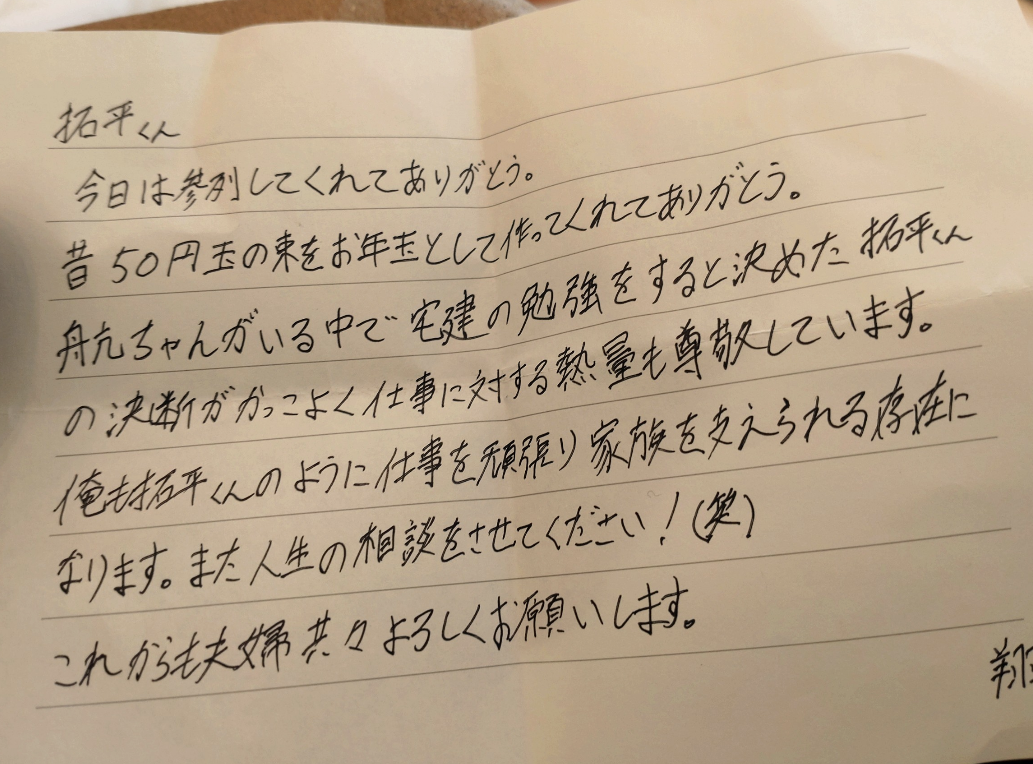 拓平くん
今日は参列してくれてありがとう。
昔50円玉の束をお年玉として作ってくれてありがとう。
舟亢ちゃんがいる中で宅建の勉強をすると決めた拓平くん
の決断がかっこよく仕事に対する熱量も尊敬しています。
俺も拓平くんのように仕事を頑張り家族を支えられる存在に
なります。また人生の相談をさせてください！(笑)
これからも夫婦共々よろしくお願いします。
翔